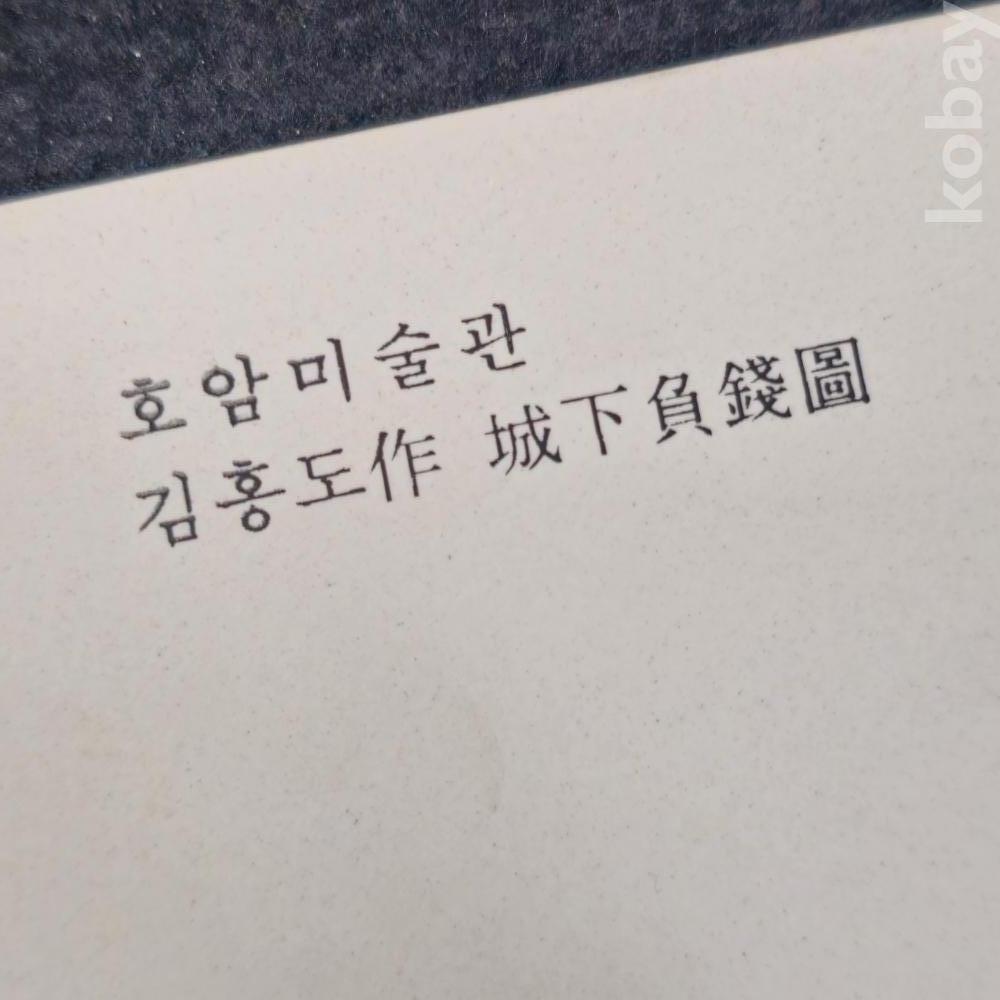 호암미술관
김홍도作 城下負錢圖
kobay